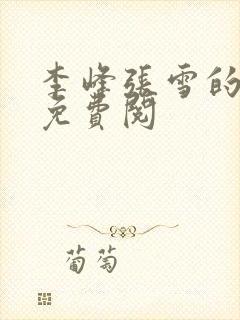 李峰張雪的
免費閱
葡萄